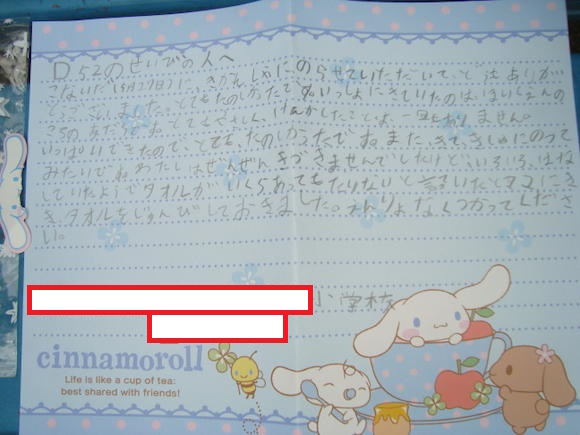 D52のせいびの人へ
こないだ(5月27日)に、きかんしゃにのらせていただいて、どうもありが
とうございました。とてもたのしかったです。いっしょにきていたのは、ほいくえんの
ころのあだちです。とてもやさしく、けんかしたことは、一ども
ありません。
いっぱいできたので、とても、たのしかったです。またきて、きしゃにのって
みたいです。わたしはぜんぜんきづきませんでしたけど、いろいろ
していたようでタオルがいくらあってもたりないと言いたとママにき
き、タオルをじゅんびしておきました。えんりょなくつかってくださ
い。
小学校
cinnamoroll
Life is like a cup of tea:
best shared with friends!